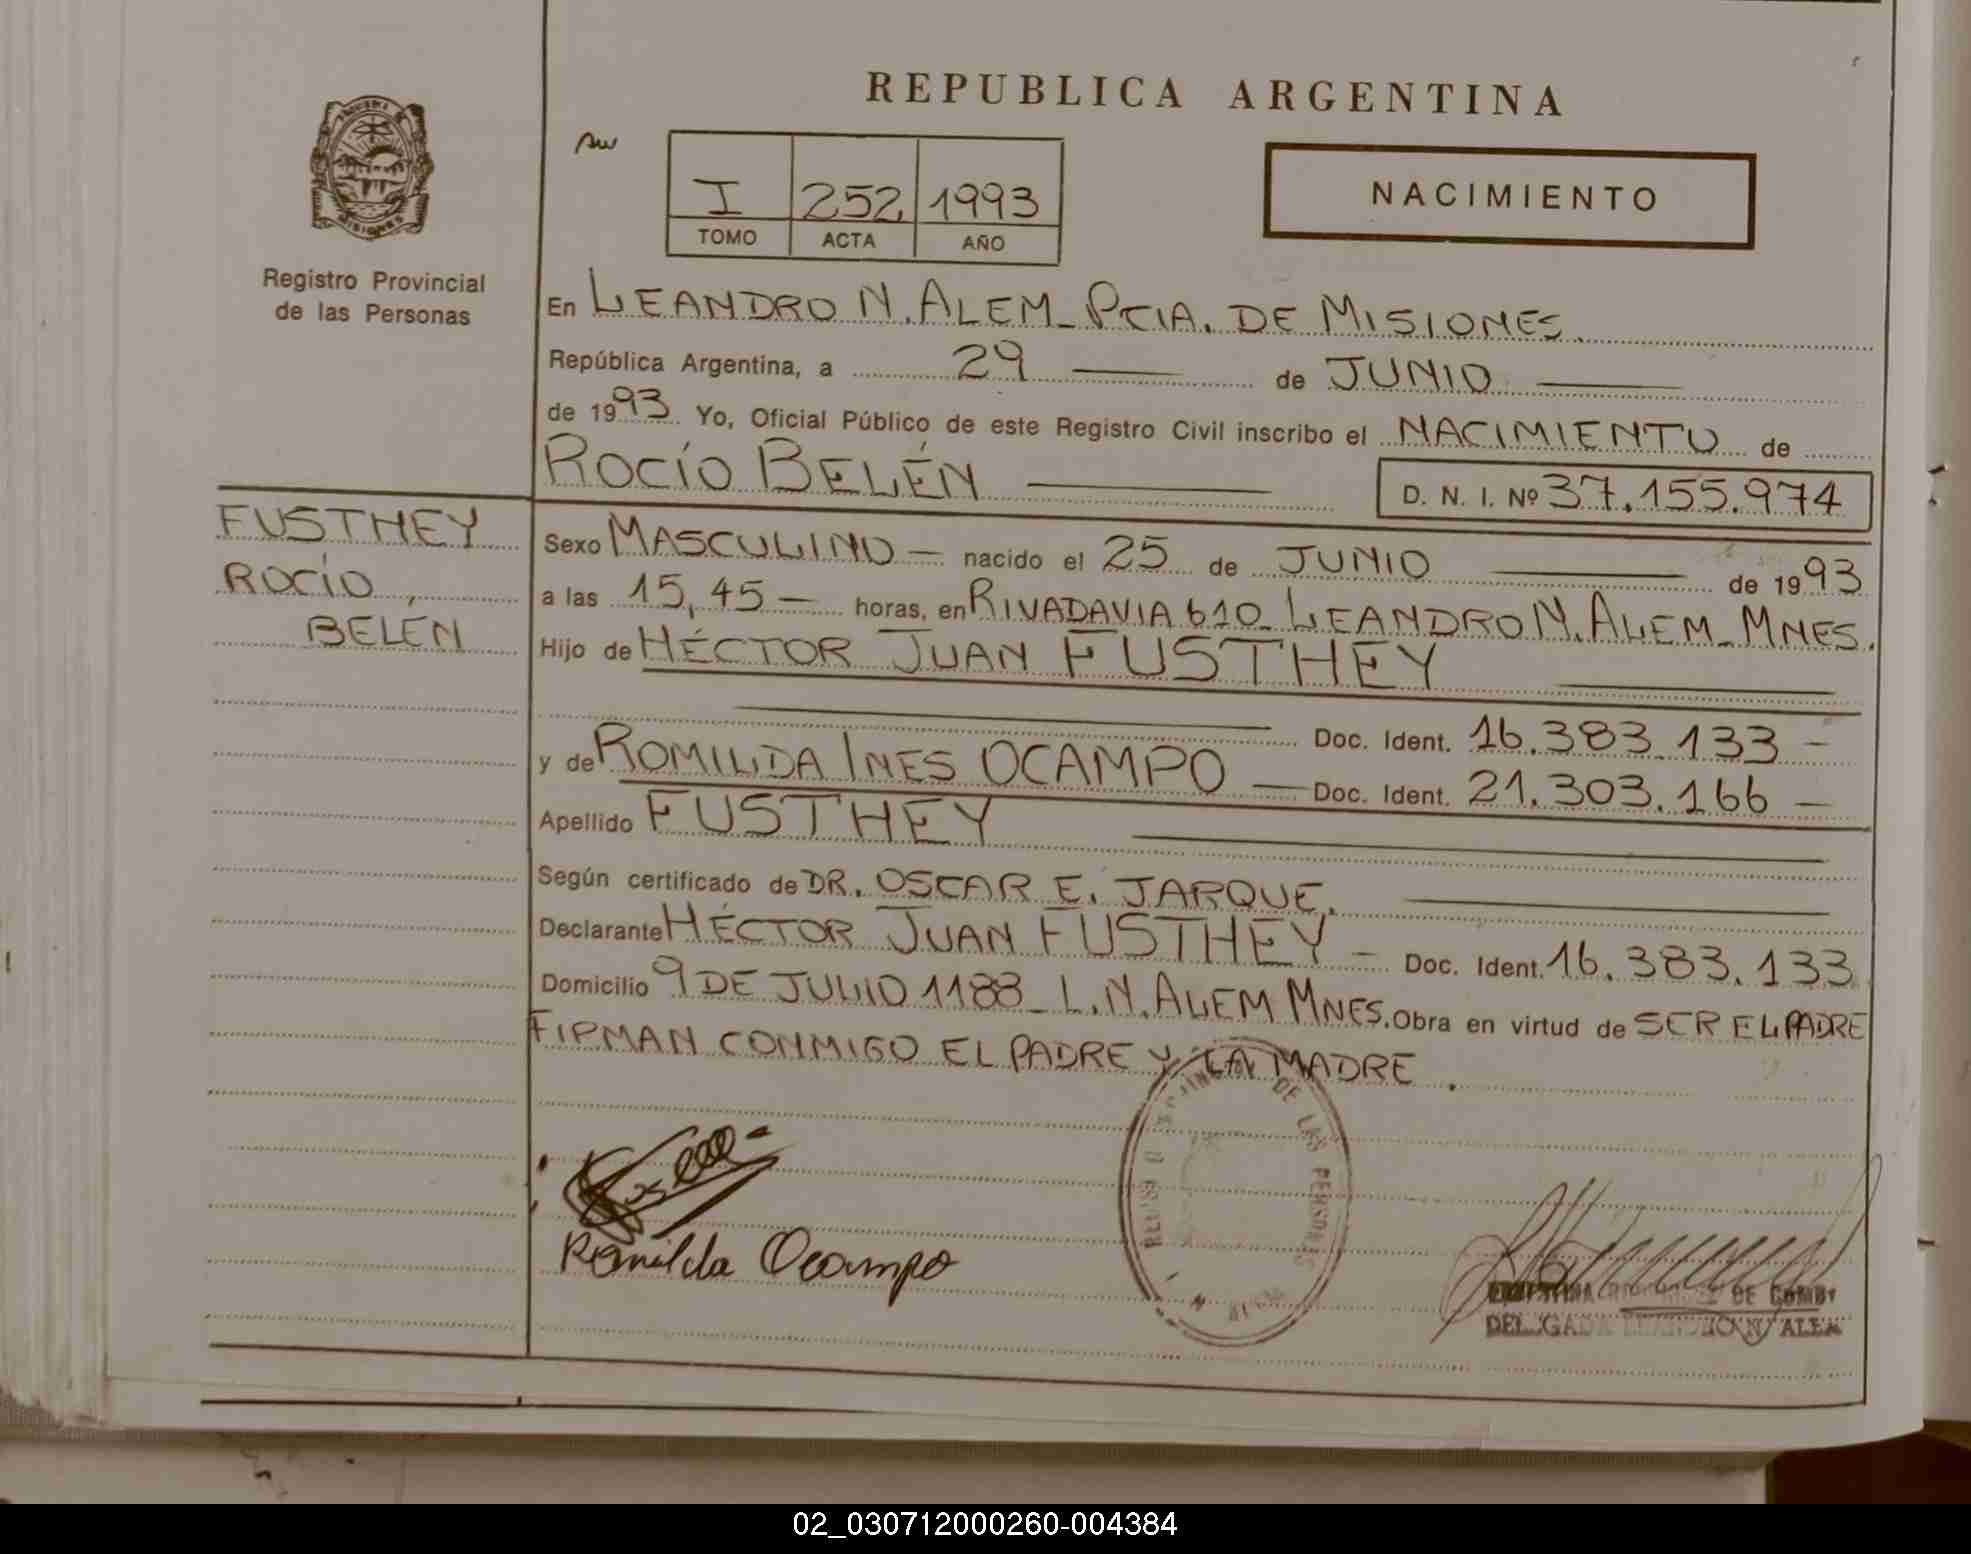 REPUBLICA ARGENTINA
I 252 1993
TOMO ACTA AÑO
NACIMIENTO
MISIONES
Registro Provincial
de las Personas
En LEANDRO N. ALEM_ PCIA. DE MISIONES.
República Argentina, a 29 de JUNIO
de 1993 Yo, Oficial Público de este Registro Civil inscribo el NACIMIENTO de
ROCÍO BELÉN
D. N. I. Nº 37.155.974
FUSTHEY
ROCÍO,
BELÉN
Sexo MASCULINO — nacido el 25 de JUNIO de 1993
a las 15,45 — horas, en RIVADAVIA 610_ LEANDRO N. ALEM_ MNES.
Hijo de HÉCTOR JUAN FUSTHEY
Doc. Ident. 16.383.133 —
y de ROMILDA INES OCAMPO — Doc. Ident. 21.303.166 —
Apellido FUSTHEY
Según certificado de DR. OSCAR E. JARQUE.
Declarante HÉCTOR JUAN FUSTHEY — Doc. Ident. 16.383.133
Domicilio 9 DE JULIO 1188_ L.N. ALEM MNES. Obra en virtud de SER EL PADRE
FIRMAN CONMIGO EL PADRE Y LA MADRE.
DE LAS PERSONAS
ALEM
Romilda Ocampo
DE
ALEM
02_030712000260-004384